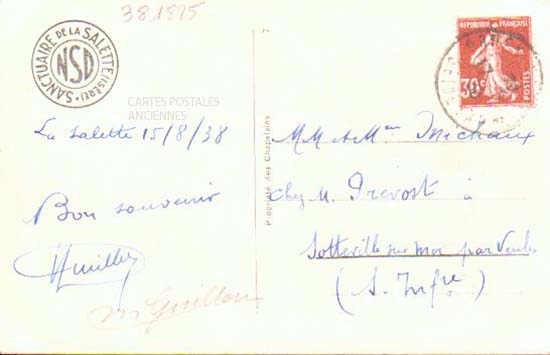 381825
SANCTUAIRE DE LA SALETTE (ISERE)
NSD
CARTES POSTALES
ANCIENNES
La Salette 15/8/38
Bon souvenir
m Guillon
Propriété des Chapelains
REPUBLIQUE FRANÇAISE
30c
POSTES
M M et Mme Michaux
chez M. Prevost à
Sotteville sur Mer par Veules
(S. Infre)